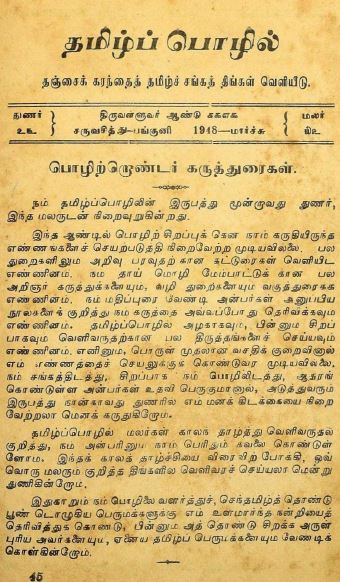 தமிழ்ப் பொழில்
தஞ்சைக் கரந்தைத் தமிழ்ச் சங்கத் திங்கள் வெளியீடு.
துணர் திருவள்ளுவர் ஆண்டு ௧௯௭௯ மலர்
௨௨ சருவசித்து-பங்குனி 1948-மார்ச்சு ௰௨
பொழிற்றொண்டர் கருத்துரைகள்.
நம் தமிழ்ப்பொழிலின் இருபத்து மூன்றுவது துணர்,
இந்த மலருடன் நிறைவுறுகின்றது.
இந்த ஆண்டில் பொழிற் சிறப்புக் கென நாம் கருதியிருந்த
எண்ணங்களைச் செயற்படுத்தி நிறைவேற்ற முடியவில்லை. பல
துறைகளிலும் அறிவு பரவுதற் கான கட்டுரைகள் வெளியிட
எண்ணினம். நம் தாய் மொழி மேம்பாட்டுக் கான பல
அறிஞர் கருத்துக்களையும், வழி துறைகளையும் வகுத்துரைக்க
எண்ணினம். நம் மதிப்புரை வேண்டி அன்பர்கள் அனுப்பிய
நூல்களைக் குறித்து நம் கருத்தை அவ்வப்போது தெரிவிக்கவும்
எண்ணினம். தமிழ்ப்பொழில் அழகாகவும், பின்னும் சிறப்
பாகவும் வெளிவருதற்கான பல திருத்தங்களைச் செய்யவும்
எண்ணினம். எனினும், பொருள் முதலான வசதிக் குறைவினால்
எம் எண்ணத்தைச் செயலுக்குக் கொண்டுவர முடியவில்லை.
நம் சங்கத்திடத்து, சிறப்பாக நம் பொழிலிடத்து, ஆதரங்
கொண்டுள்ள அன்பர்கள் உதவி பெருகுமானால், அடுத்துவரும்
இருபத்து நான்காவது துணரில் எம் மனக் கிடக்கையை நிறை
வேற்றலா மெனக் கருதுகிறோம்.
தமிழ்ப்பொழில் மலர்கள் காலந் தாழ்த்து வெளிவருதல்
குறித்து, நம் அன்பரினும் நாம் பெரிதும் கவலை கொண்டுள்
ளோம். இந்தக் காலத் தாழ்ச்சியை விரைவிற் போக்கி, ஒவ்
வொரு மலரும் குறித்த திங்களில் வெளிவரச் செய்யலா மென்று
துணிகின்றோம்.
இதுகாறும் நம் பொழிலை வளர்த்துச், செந்தமிழ்த் தொண்டு
பூண் டொழுகிய பெருமக்களுக்கு எம் உளமார்ந்த நன்றியைத்
தெரிவித்துக் கொண்டு, பின்னும் அத் தொண்டு சிறக்க அருள்
புரிய அவர்களையும், ஏனைய தமிழ்ப் பெருமக்களையும் வேண்டிக்
கொள்கின்றோம்.
45